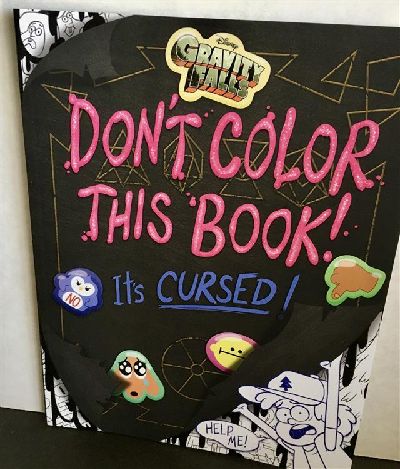 Disney
GRAVITY
FALLS
DON'T COLOR
THIS BOOK!
It's CURSED!
NO
HELP
ME!